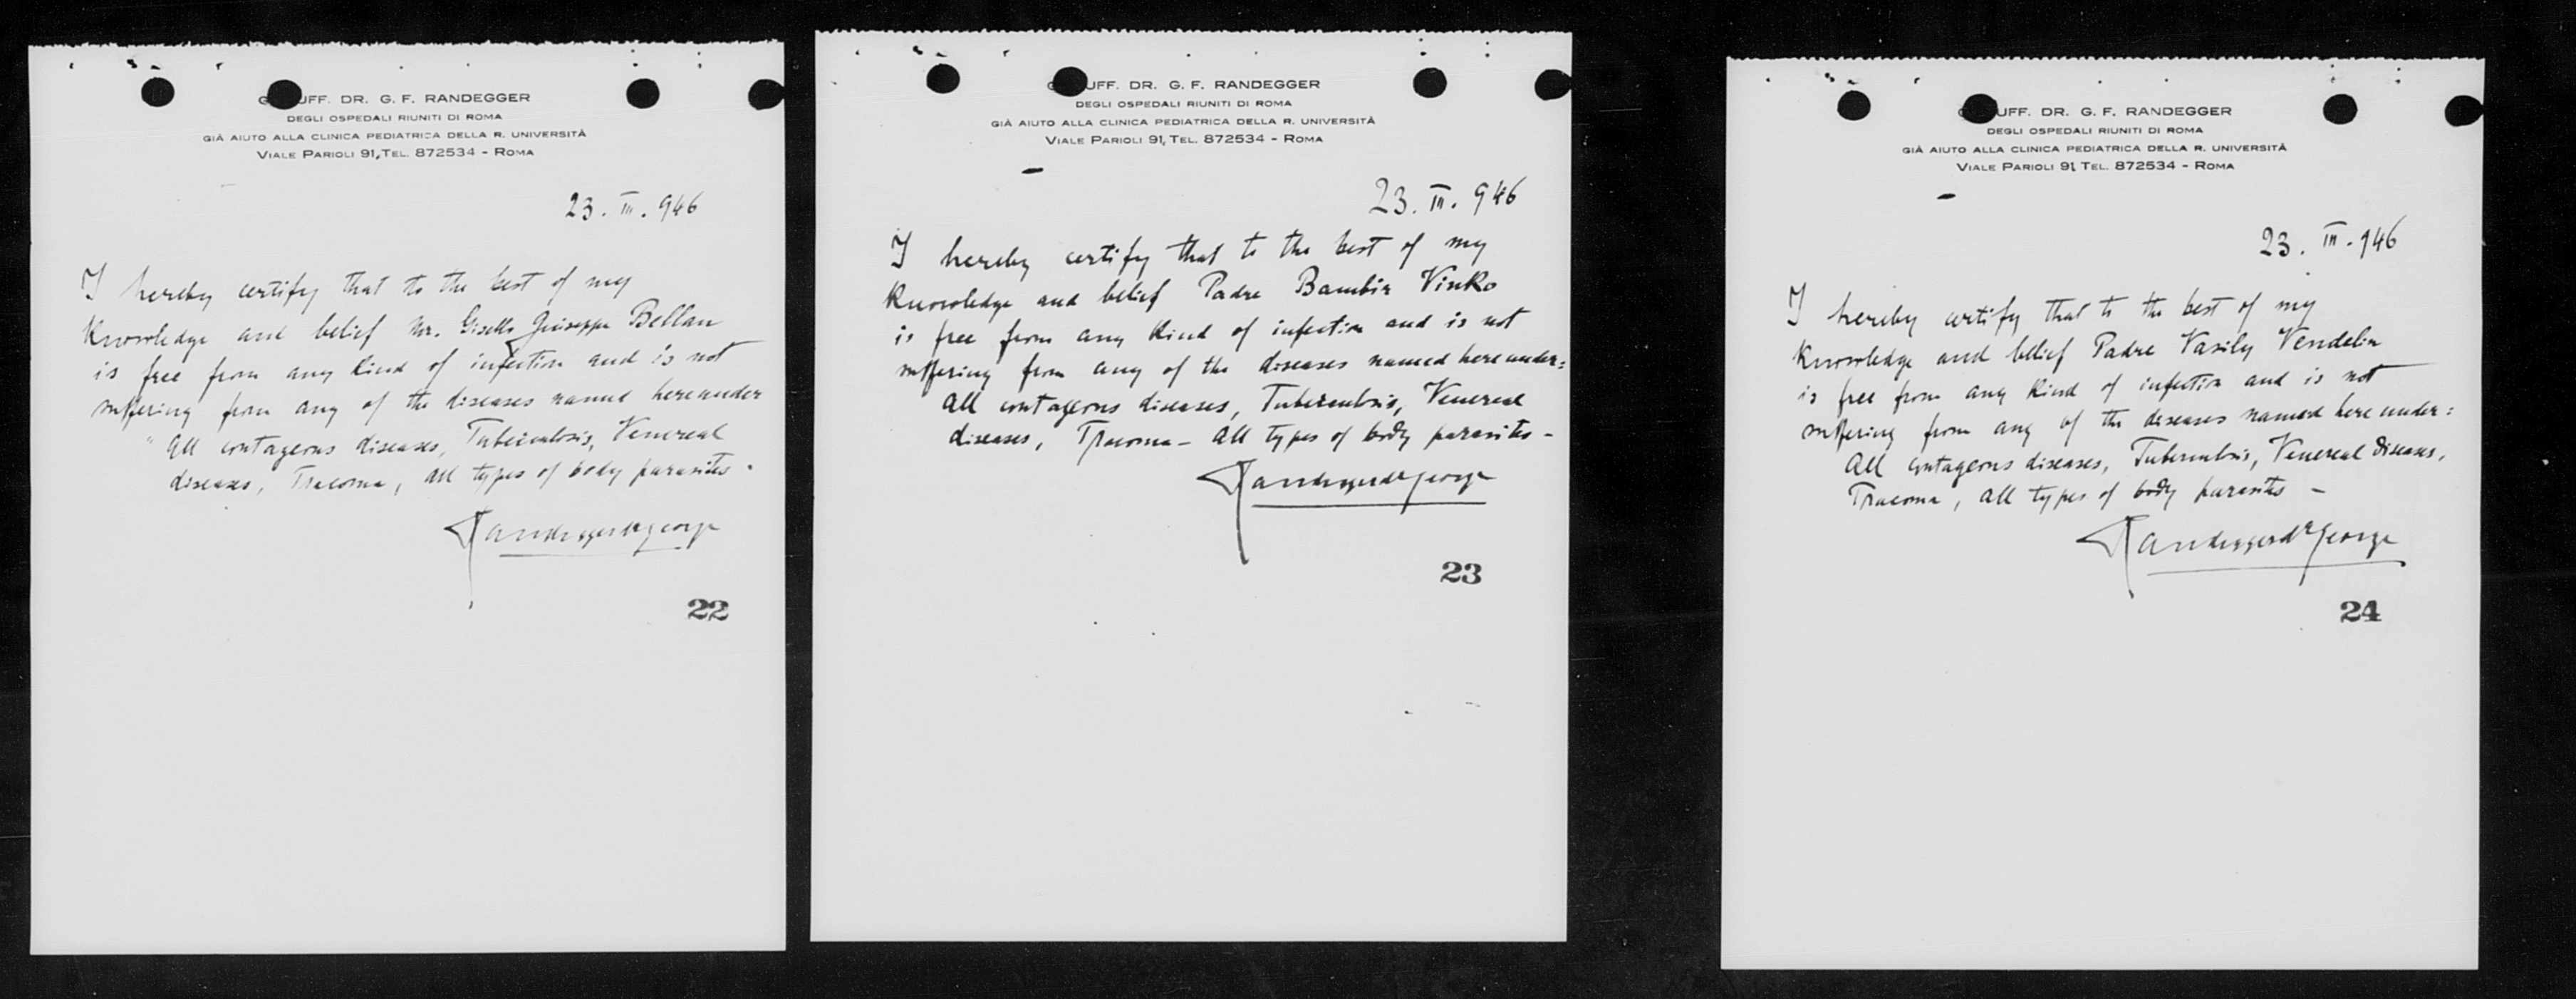 UFF. DR. G. F. RANDEGGER
DEGLI OSPEDALI RIUNITI DI ROMA
GIÀ AIUTO ALLA CLINICA PEDIATRICA DELLA R. UNIVERSITÀ
VIALE PARIOLI 91, TEL. 872534 - ROMA
23. III. 946
I hereby certify that to the best of my
Knowledge and belief Mr. Giuseppe Bellan
is free from any kind of infection and is not
suffering from any of the diseases named hereunder
" All contageous diseases, Tuberculosis, Venereal
diseases, Tracoma, all types of body parasites.
Randegger dr George
22
UFF. DR. G. F. RANDEGGER
DEGLI OSPEDALI RIUNITI DI ROMA
GIÀ AIUTO ALLA CLINICA PEDIATRICA DELLA R. UNIVERSITÀ
VIALE PARIOLI 91, TEL. 872534 - ROMA
23. III. 946
I hereby certify that to the best of my
Knowledge and belief Padre Bambir Vinko
is free from any kind of infection and is not
suffering from any of the diseases named here under:
All contageous diseases, Tuberculosis, Venereal
diseases, Tracoma - all types of body parasites -
Randegger dr George
23
UFF. DR. G. F. RANDEGGER
DEGLI OSPEDALI RIUNITI DI ROMA
GIÀ AIUTO ALLA CLINICA PEDIATRICA DELLA R. UNIVERSITÀ
VIALE PARIOLI 91 TEL. 872534 - ROMA
23. III. 946
I hereby certify that to the best of my
Knowledge and belief Padre Vasily Vendelin
is free from any kind of infection and is not
suffering from any of the diseases named here under:
All contageous diseases, Tuberculosis, Venereal diseases,
Tracoma, all types of body parasites -
Randegger dr George
24